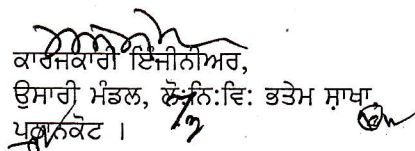 ਕਾਰਜਕਾਰੀ ਇੰਜੀਨੀਅਰ,
ਉਸਾਰੀ ਮੰਡਲ, ਲੋ:ਨਿ:ਵਿ: ਭਤੇਮ ਸ਼ਾਖਾ
ਪਠਾਨਕੋਟ ।